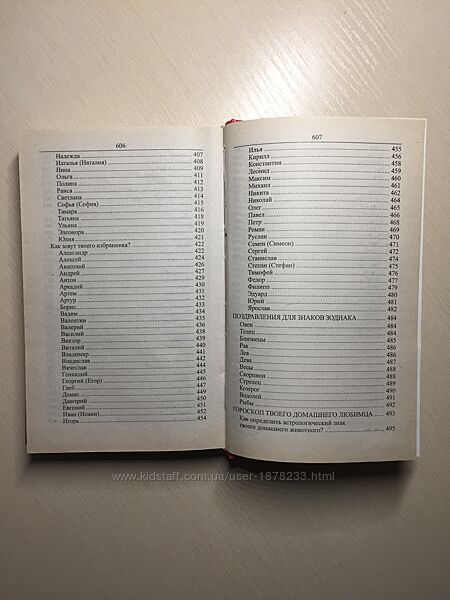 606
Надежда 407
Наталья (Наталия) 408
Нина 409
Ольга 411
Полина 412
Раиса 413
Светлана 414
Софья (София) 415
Тамара 416
Татьяна 418
Ульяна 419
Элеонора 420
Юлия 421
Как зовут твоего избранника? 422
Александр 422
Алексей 424
Анатолий 426
Андрей 427
Антон 429
Аркадий 430
Артем 431
Артур 432
Борис 433
Вадим 434
Валентин 435
Валерий 436
Василий 438
Виктор 439
Виталий 440
Владимир 441
Владислав 442
Вячеслав 444
Геннадий 445
Георгий (Егор) 446
Глеб 447
Денис 448
Дмитрий 449
Евгений 451
Иван (Иоанн) 452
Игорь 454
607
Илья 455
Кирилл 456
Константин 458
Леонид 459
Максим 460
Михаил 461
Никита 462
Николай 463
Олег 465
Павел 467
Петр 468
Роман 469
Руслан 470
Семен (Симеон) 471
Сергей 472
Станислав 474
Степан (Стефан) 475
Тимофей 476
Федор 477
Филипп 479
Эдуард 480
Юрий 481
Ярослав 482
ПОЗДРАВЛЕНИЯ ДЛЯ ЗНАКОВ ЗОДИАКА 484
Овен 484
Телец 485
Близнецы
Рак 486
Лев 487
Дева
Весы 488
Скорпион 489
Стрелец 490
Козерог
Водолей 491
Рыбы 492
ГОРОСКОП ТВОЕГО ДОМАШНЕГО ЛЮБИМЦА 493
Как определить астрологический знак
твоего домашнего животного? 495
www.kidstaff.com.ua/user-1878233.html